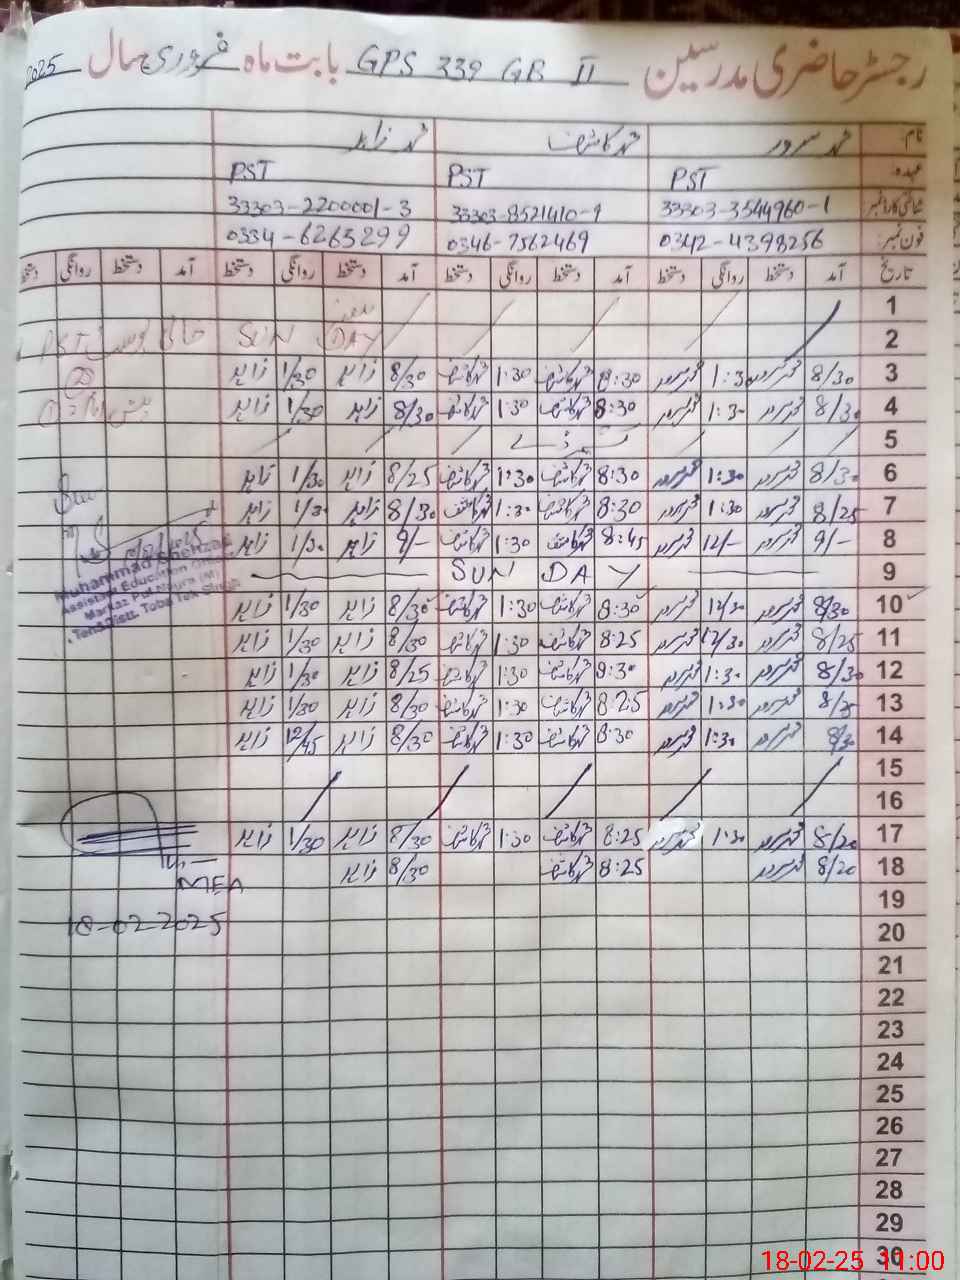 رجسٹر حاضری مدرسین GPS 339 GB II بابت ماہ فروری سال 2025
نام: محمد سرور محمد کاشف محمد زاہد
عہدہ: PST PST PST
شناختی کارڈ نمبر: 33303-3544960-1 33303-8521410-9 33303-2200001-3
فون نمبر: 0342-4398256 0346-7562469 0334-6263299
تاریخ آمد دستخط روانگی دستخط آمد دستخط روانگی دستخط آمد دستخط روانگی دستخط آمد دستخط روانگی دستخط
1
2 SUN DAY خالی PST
3 8/30 محمد سرور 1:30 محمد سرور 8:30 محمد کاشف 1:30 محمد کاشف 8/30 زاہد 1/30 زاہد
4 8/30 محمد سرور 1:30 محمد سرور 8:30 محمد کاشف 1:30 محمد کاشف 8/30 زاہد 1/30 زاہد
5
6 8/30 محمد سرور 1:30 محمد سرور 8:30 محمد کاشف 1:30 محمد کاشف 8/25 زاہد 1/30 زاہد
7 8/25 محمد سرور 1:30 محمد سرور 8:30 محمد کاشف 1:30 محمد کاشف 8/30 زاہد 1/30 زاہد
8 9/- محمد سرور 12/- محمد سرور 8:45 محمد کاشف 1:30 محمد کاشف 9/- زاہد 1/30 زاہد
9 SUN DAY
Muhammad Shehzad
Assistant Education Officer
10 8/30 محمد سرور 12/30 محمد سرور 8:30 محمد کاشف 1:30 محمد کاشف 8/30 زاہد 1/30 زاہد
11 8/25 محمد سرور 12/30 محمد سرور 8:25 محمد کاشف 1:30 محمد کاشف 8/30 زاہد 1/30 زاہد
12 8/30 محمد سرور 1:30 محمد سرور 8:30 محمد کاشف 1:30 محمد کاشف 8/25 زاہد 1/30 زاہد
13 محمد سرور 1:30 محمد سرور 8:25 محمد کاشف 1:30 محمد کاشف 8/30 زاہد 1/30 زاہد
14 8/30 محمد سرور 1:30 محمد سرور 8:30 محمد کاشف 1:30 محمد کاشف 8/30 زاہد 12/45 زاہد
15
16
17 8/20 محمد سرور 1:30 محمد سرور 8:25 محمد کاشف 1:30 محمد کاشف 8/30 زاہد 1/30 زاہد
18 8/20 محمد سرور 8:25 محمد کاشف 8/30 زاہد
MEA
18-02-2025
19
20
21
22
23
24
25
26
27
28
29
30
18-02-25 11:00